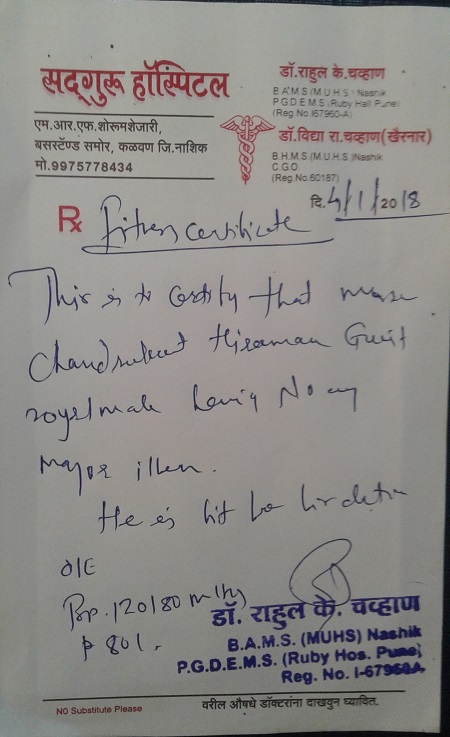 सद्गुरू हॉस्पिटल
एम.आर.एफ.शोरूमशेजारी,
बसस्टॅण्ड समोर, कळवण जि.नाशिक
मो.9975778434
डॉ.राहुल के.चव्हाण
B.A.M.S (M.U.H.S.) Nashik
P.G.D.E.M.S. (Ruby Hall Pune)
(Reg No.I67960-A)
डॉ.विद्या रा.चव्हाण(खैरनार)
B.H.M.S (M.U.H.S.)Nashik
C.G.O.
(Reg No.60187)
दि. 4/1/2018
Rx Fitness certificate
This is to certify that
Chandrakant Hiraman Gavit
male having No any
major illen.
He is fit for his
O/E
Bp. 120/80 m/hg
P 80/.
डॉ. राहुल के. चव्हाण
B.A.M.S. (MUHS) Nashik
P.G.D.E.M.S. (Ruby Hos. Pune)
Reg. No. I-67960-A
NO Substitute Please
वरील औषधे डॉक्टरांना दाखवून घ्यावित.